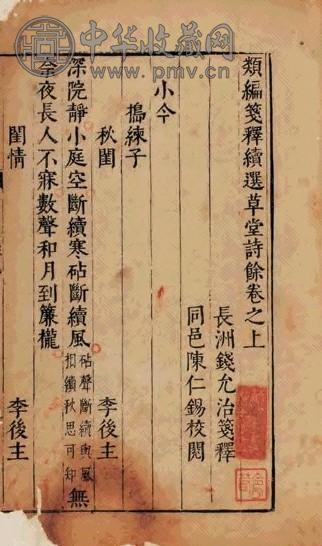 中华收藏网
www.pmv.cn
類編箋釋續選草堂詩餘卷之上
長洲錢允治箋釋
同邑陳仁錫校閱
小令
搗練子
秋閨 李後主
深院靜小庭空斷續寒砧斷續風砧聲斷續與風相續秋思可知無
奈夜長人不寐數聲和月到簾櫳
閨情 李後主